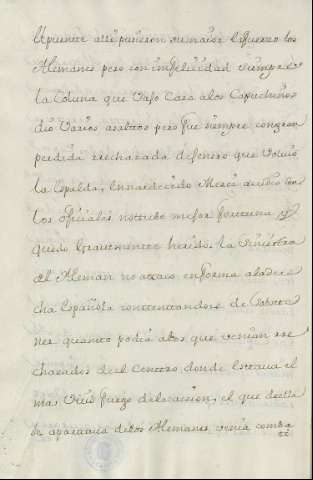 el puente alli pusieron su maior Esfuerzo los
Alemanes pero con infelicidad siempre
la Coluna que bajo Cara a los Capuchinos
dio Varios asaltos pero fue siempre con gran
perdida rechazada de forma que Volvio
la Espalda, Enardecido Merci acudio con
los oficiales no tubo mejor fortuna y
quedo Gravemente herido. la Siniestra
del Aleman no ataco en forma a la dere
cha Española contentandose de sostener
quanto podia a los que venian re
chazados del Centro, donde Estava el
mas Vivo fuego de la accion, el que desde
la de los Alemanes venia comba
ti